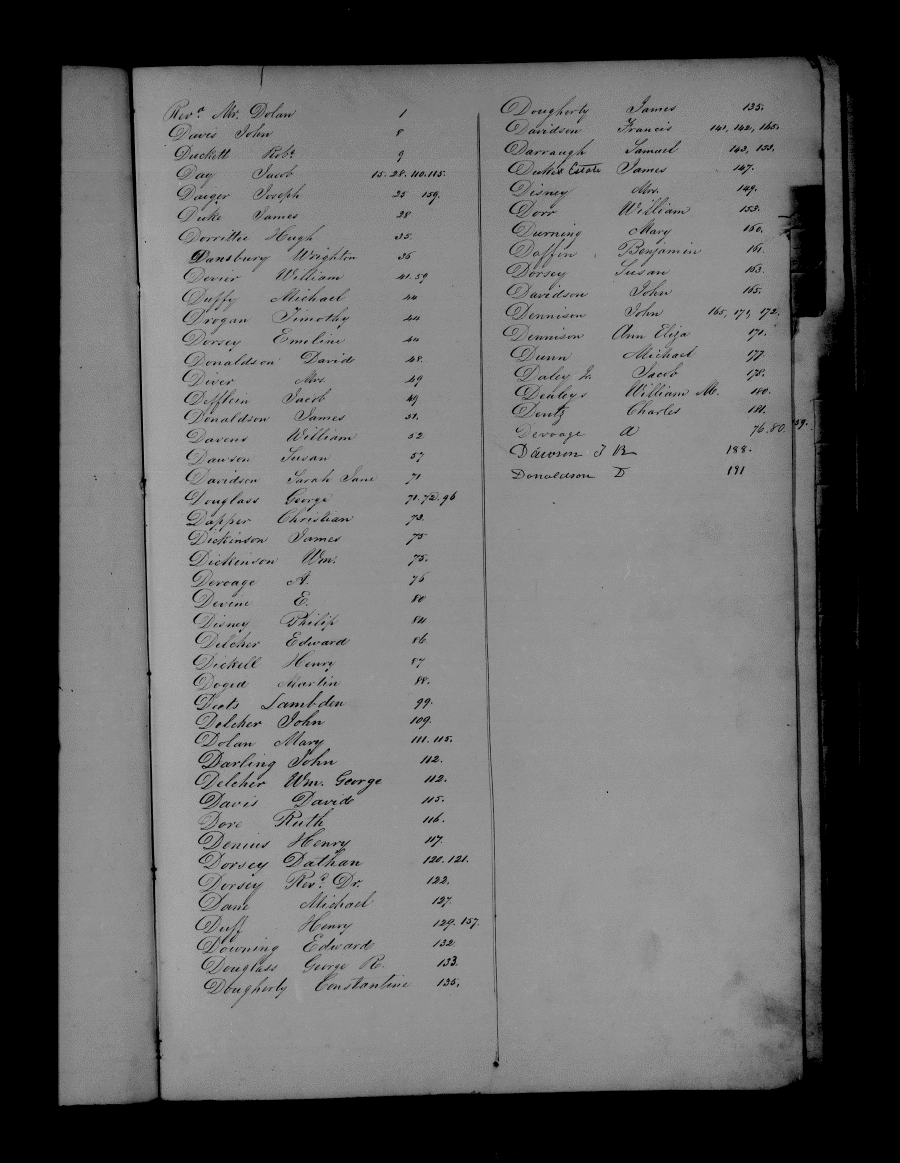 Revd. Mr. Dolan 1
Davis John 8
Duckett Robt. 9
Day Jacob 15. 28. 110. 115.
Daiger Joseph 25 159.
Duke James 28
Dorrittee Hugh 35.
Dansbury Wrighton 36
Devier William 41. 59
Duffy Michael 44
Drogan Timothy 44
Dorsey Emeline 44
Donaldson David 48.
Diver Mrs. 49
Jacob 49
Donaldson James 51.
Davens William 52
Dawson Susan 57
Davidson Sarah Jane 71
Douglass George 71. 72. 96
Dapper Christian 73.
Dickinson James 75
Dickinson Wm. 75.
Devoage A. 76
Devine E. 80
Disney Philip 84
Delcher Edward 86
Dickell Henry 87
Martin 88.
Lambden 99.
Delcher John 109.
Dolan Mary 111. 115.
Darling John 112.
Delcher Wm. George 112.
Davis David 115.
Dore Ruth 116.
Denius Henry 117.
Dorsey Dathan 120. 121.
Dorsey Revd. Dr. 122.
Dane Michael 127.
Duff Henry 129. 157.
Downing Edward 132
Douglass George R. 133.
Dougherty Constantine 135.
Dougherty James 135.
Davidson Francis 141, 142, 165.
Darraugh Samuel 143, 153.
Estate James 147.
Disney Mrs. 149.
Dorr William 153.
Durning Mary 160.
Daffin Benjamin 161.
Dorsey Susan 163.
Davidson John 165.
Dennison John 165, 171, 172.
Dennison Ann Eliza 171.
Dunn Michael 177.
Daley Jr. Jacob 178.
Dealeys William M. 180.
Deutz Charles 181.
Devoage A 76. 80. 159.
Dawson J 188.
Donaldson D 191